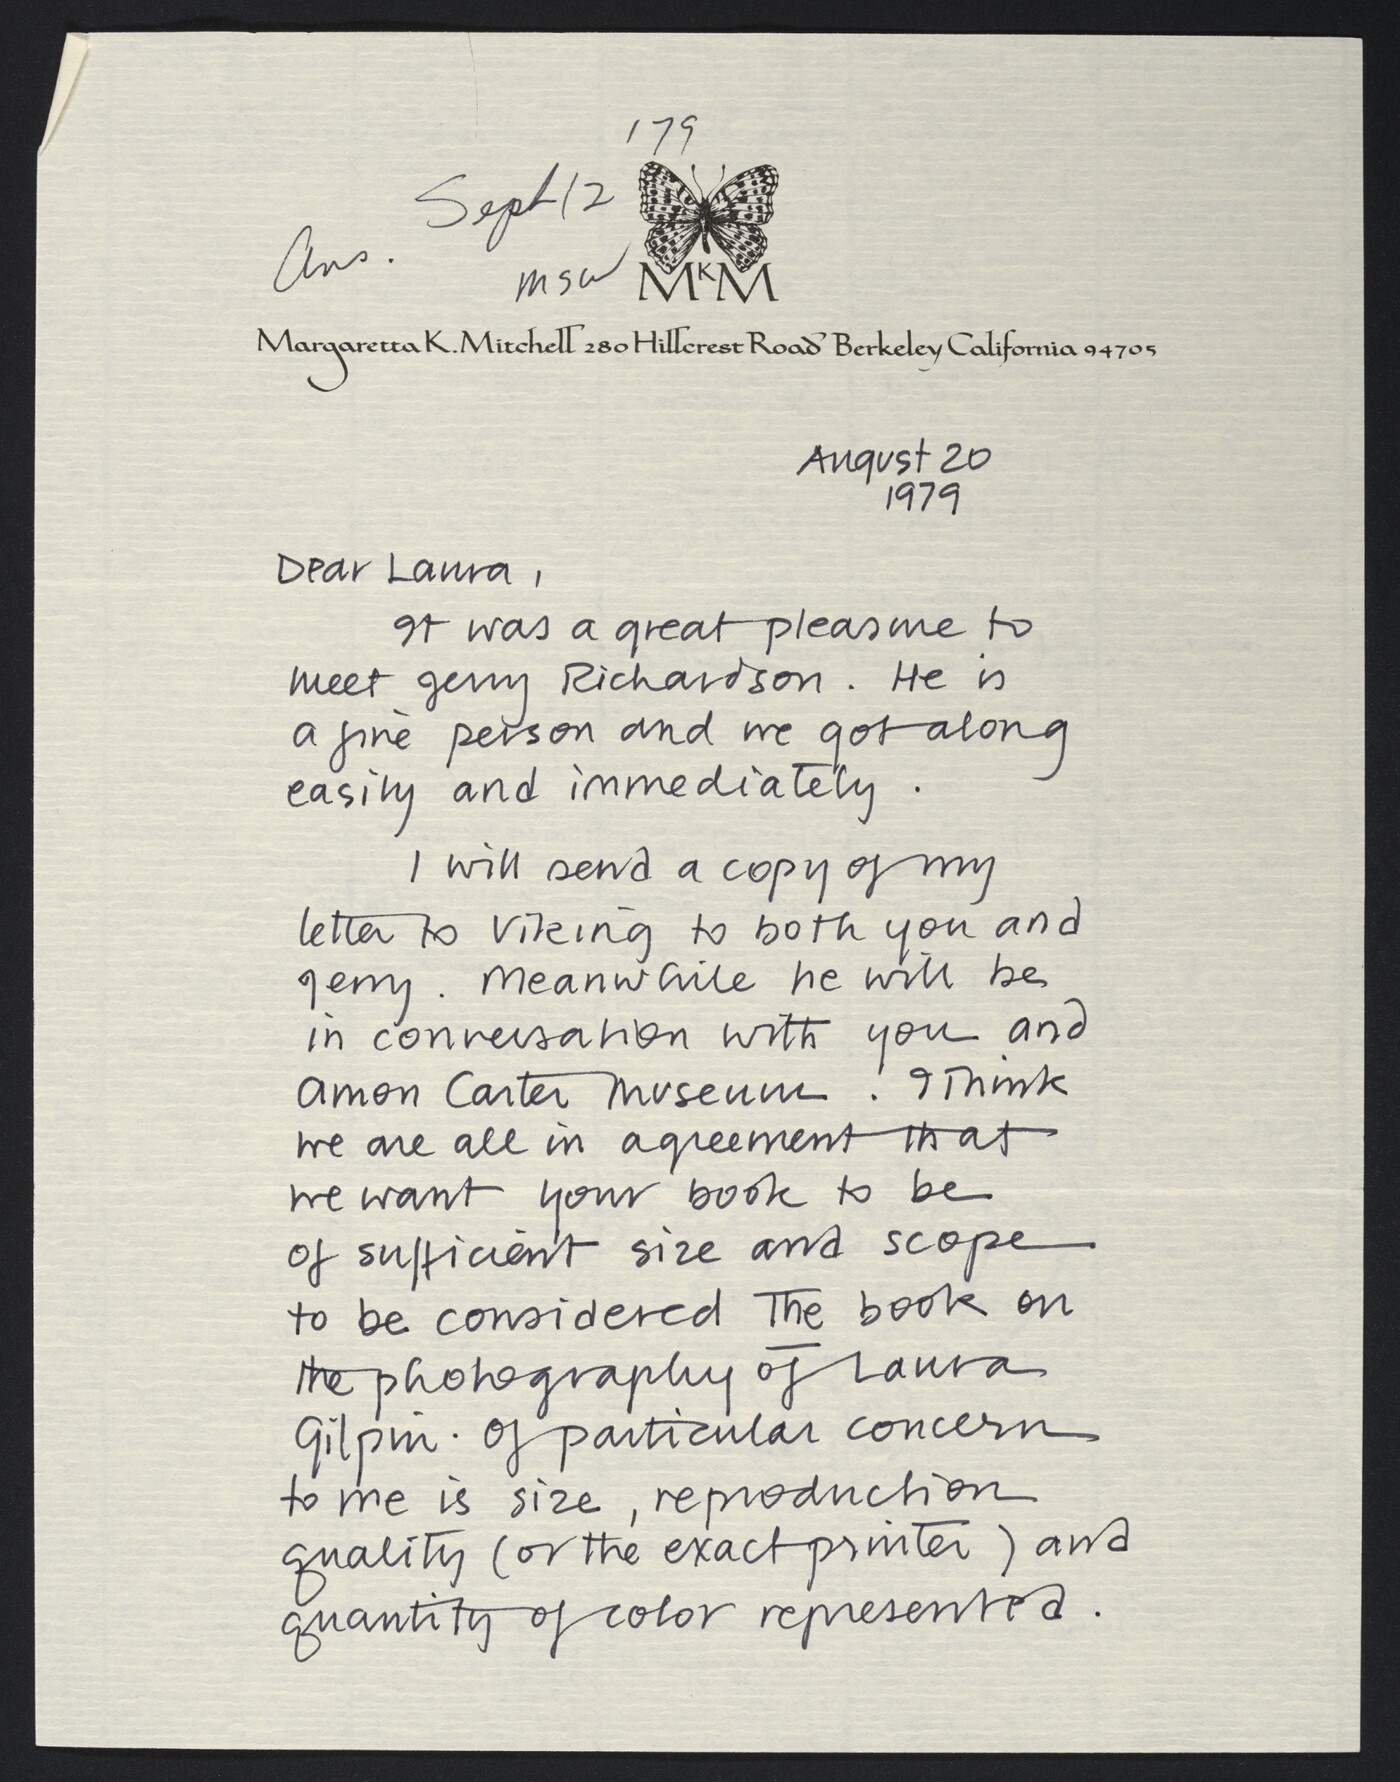 179
Sept 12
Ans.
msw
MKM
Margaretta K. Mitchell 280 Hillcrest Road Berkeley California 94705
August 20
1979
Dear Laura,
It was a great pleasure to
meet Jerry Richardson. He is
a fine person and we got along
easily and immediately.
I will send a copy of my
letter to Viking to both you and
Jerry. Meanwhile he will be
in conversation with you and
Amon Carter Museum. I think
we are all in agreement that
we want your book to be
of sufficient size and scope
to be considered The book on
the photography of Laura
Gilpin. Of particular concern
to me is size, reproduction
quality (or the exact printer) and
quantity of color represented.